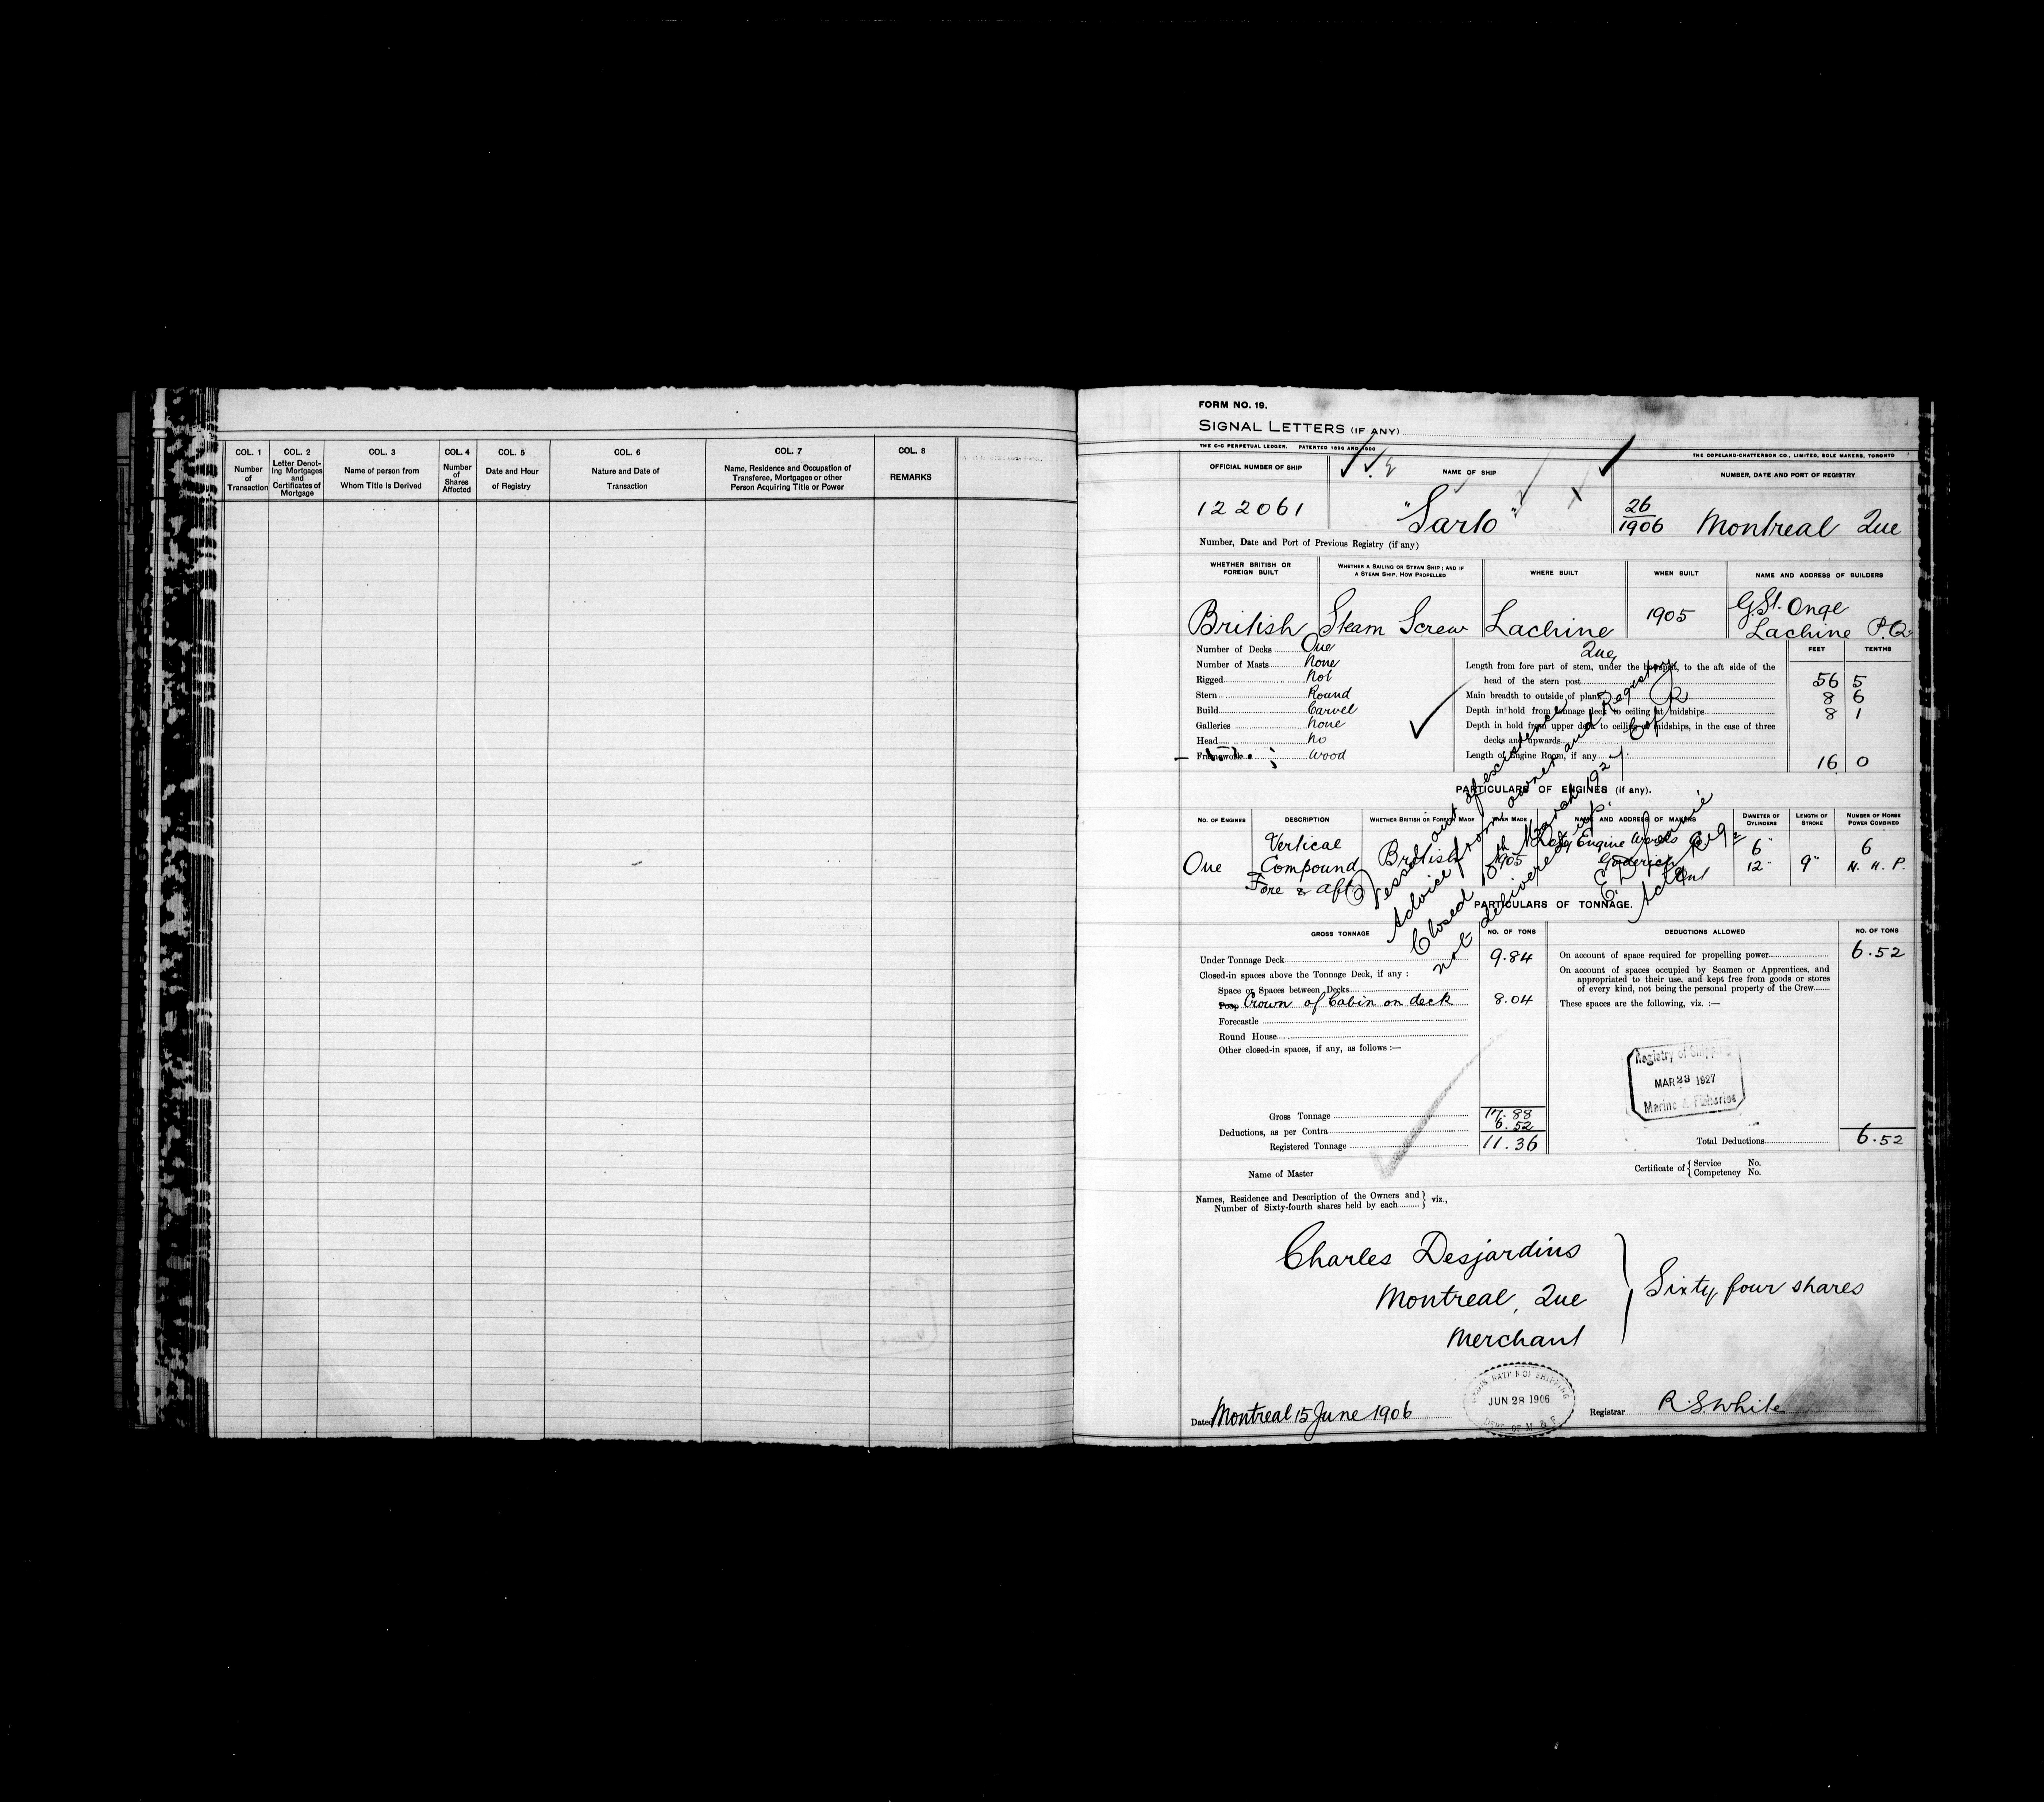 COL. 1
Number
of
Transaction
COL. 2
Letter Denot-
ing Mortgages
and
Certificates of
Mortgage
COL. 3
Name of person from
Whom Title is Derived
COL. 4
Number
of
Shares
Affected
COL. 5
Date and Hour
of Registry
COL. 6
Nature and Date of
Transaction
COL. 7
Name, Residence and Occupation of
Transferee, Mortgagee or other
Person Acquiring Title or Power
COL. 8
REMARKS
FORM NO. 19.
SIGNAL LETTERS (IF ANY)
THE C-C PERPETUAL LEDGER. PATENTED 1896 AND 1900
THE COPELAND-CHATTERSON CO., LIMITED, SOLE MAKERS, TORONTO
OFFICIAL NUMBER OF SHIP
NAME OF SHIP
NUMBER, DATE AND PORT OF REGISTRY
122061
"Sarto"
26/1906 Montreal Que
Number, Date and Port of Previous Registry (if any)
WHETHER BRITISH OR FOREIGN BUILT
WHETHER A SAILING OR STEAM SHIP; AND IF A STEAM SHIP, HOW PROPELLED
WHERE BUILT
WHEN BUILT
NAME AND ADDRESS OF BUILDERS
British
Steam Screw
Lachine
Que
1905
G. St. Onge
Lachine P.Q.
Number of Decks One
Number of Masts None
Rigged Not
Stern Round
Build Carvel
Galleries None
Head No
Framework Wood
FEET TENTHS
Length from fore part of stem, under the bowsprit, to the aft side of the
head of the stern post 56 5
Main breadth to outside of plank 8 6
Depth in hold from tonnage deck to ceiling at midships 8 1
Depth in hold from upper deck to ceiling at midships, in the case of three
decks and upwards
Length of Engine Room, if any 16 0
PARTICULARS OF ENGINES (if any).
NO. OF ENGINES
DESCRIPTION
WHETHER BRITISH OR FOREIGN MADE
WHEN MADE
NAME AND ADDRESS OF MAKERS
DIAMETER OF CYLINDERS
LENGTH OF STROKE
NUMBER OF HORSE POWER COMBINED
One
Vertical
Compound
Fore & aft
British
1905
Engine Works
Goderich
Ont
6"
12"
9"
6
N. H. P.
Vessel out of existence
Advice from owner and Registry
Closed 18th March 1927. Cof R
not delivered up.
Acta Reg
PARTICULARS OF TONNAGE.
GROSS TONNAGE
NO. OF TONS
DEDUCTIONS ALLOWED
NO. OF TONS
Under Tonnage Deck 9.84
Closed-in spaces above the Tonnage Deck, if any :
Space or Spaces between Decks
Poop Crown of Cabin on deck 8.04
Forecastle
Round House
Other closed-in spaces, if any, as follows :—
Gross Tonnage 17.88
Deductions, as per Contra 6.52
Registered Tonnage 11.36
On account of space required for propelling power 6.52
On account of spaces occupied by Seamen or Apprentices, and
appropriated to their use, and kept free from goods or stores
of every kind, not being the personal property of the Crew
These spaces are the following, viz. :—
Registry of Shipping
MAR 23 1927
Marine & Fisheries
Total Deductions 6.52
Name of Master
Certificate of { Service No.
Competency No.
Names, Residence and Description of the Owners and
Number of Sixty-fourth shares held by each } viz.,
Charles Desjardins
Montreal, Que
Merchant
Sixty four shares
Dated Montreal 15 June 1906
JUN 28 1906
Registrar R. S. White